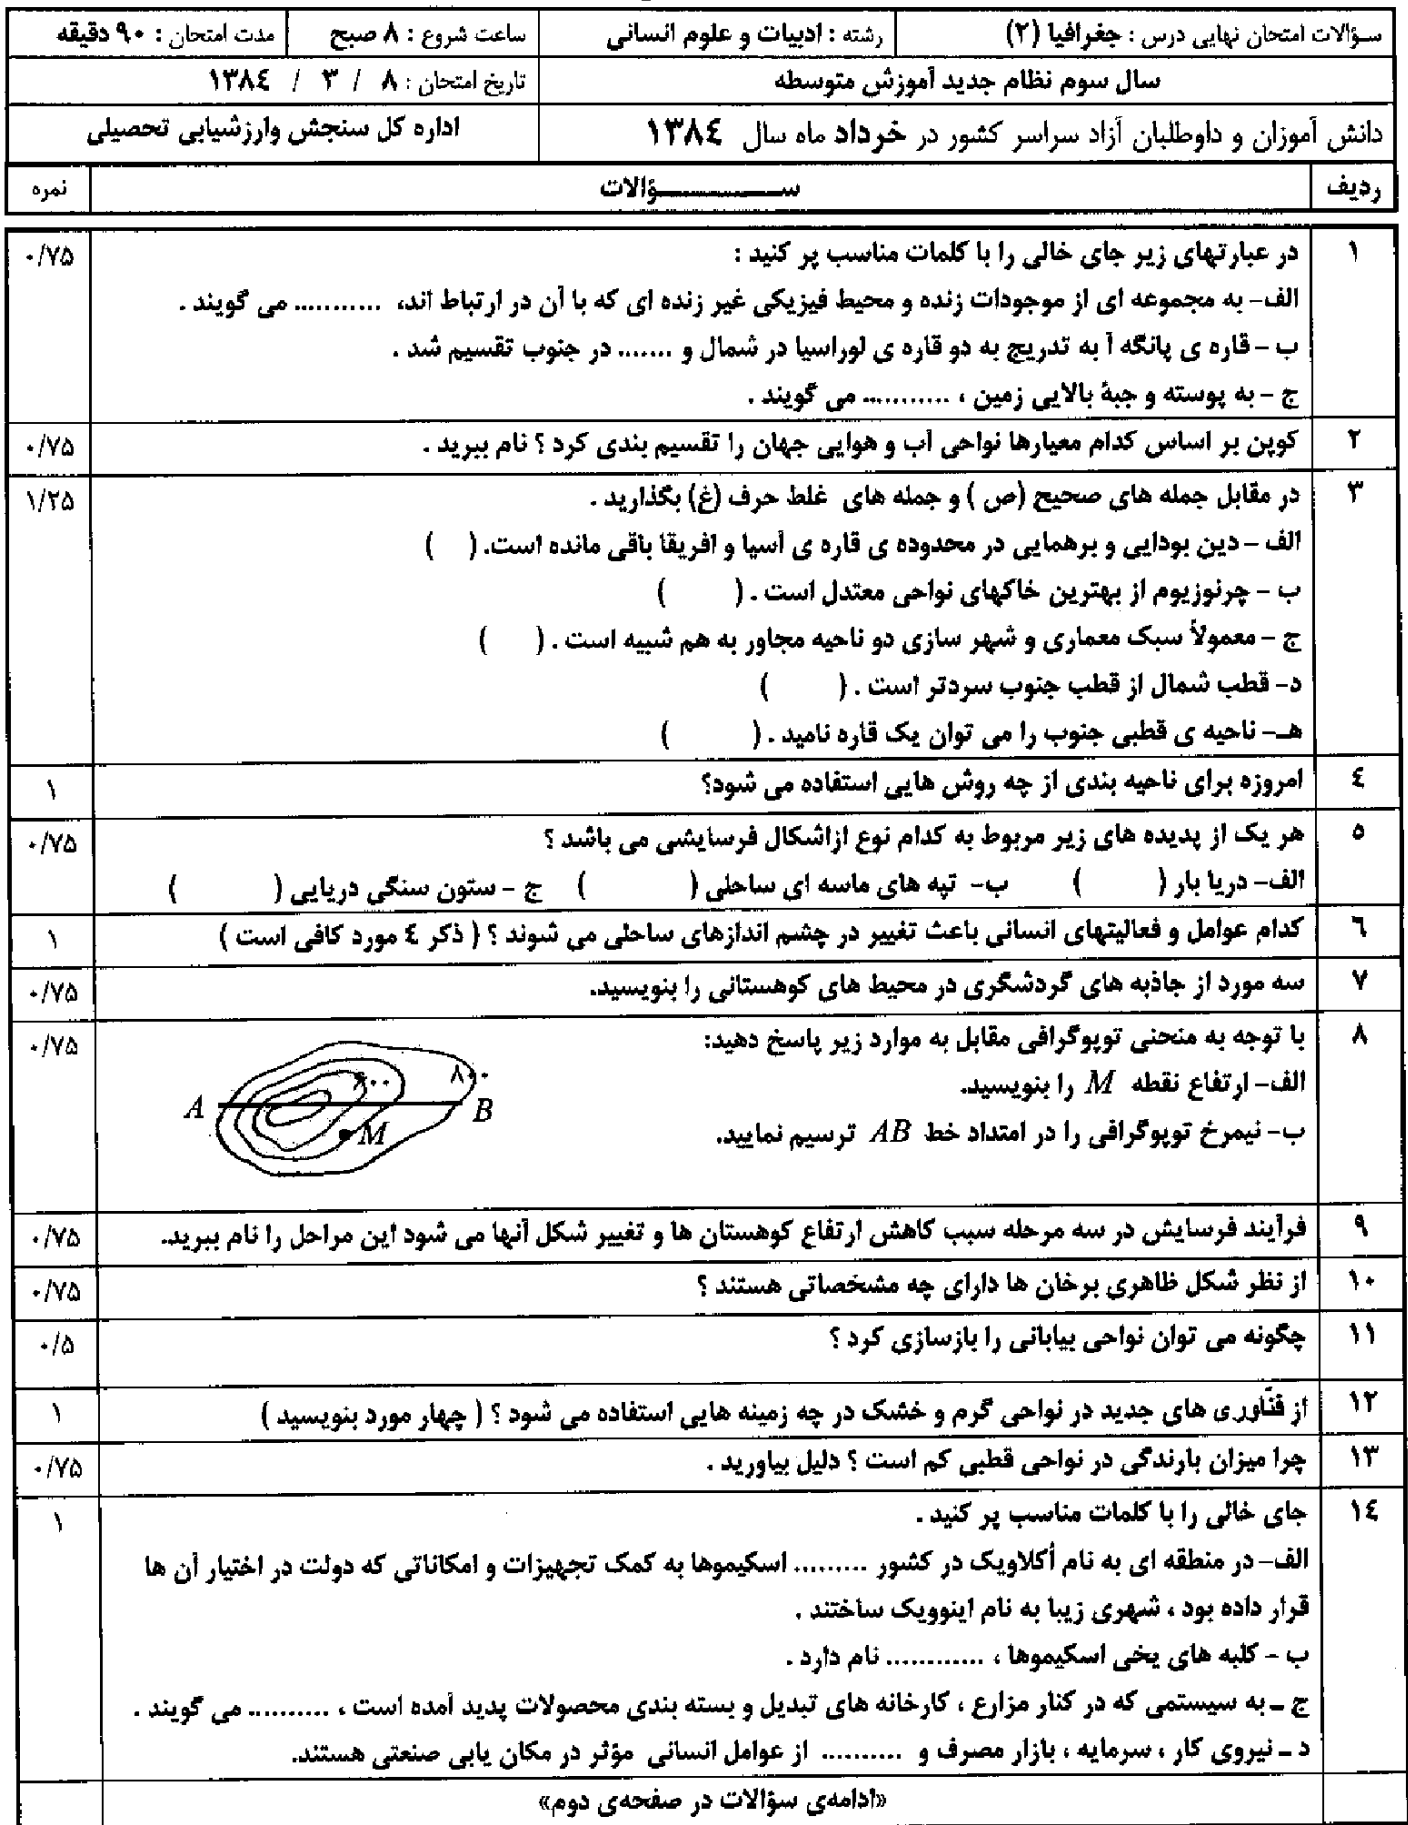 سؤالات امتحان نهایی درس : جغرافیا (۲) رشته : ادبیات و علوم انسانی ساعت شروع : ۸ صبح مدت امتحان : ۹۰ دقیقه
سال سوم نظام جدید آموزش متوسطه تاریخ امتحان : ۸ / ۳ / ۱۳۸٤
دانش آموزان و داوطلبان آزاد سراسر کشور در خرداد ماه سال ۱۳۸٤ اداره کل سنجش وارزشیابی تحصیلی
ردیف ســــــؤالات نمره
۱ در عبارتهای زیر جای خالی را با کلمات مناسب پر کنید : ۰/۷۵
الف- به مجموعه ای از موجودات زنده و محیط فیزیکی غیر زنده ای که با آن در ارتباط اند، ........... می گویند .
ب - قاره ی پانگه آ به تدریج به دو قاره ی لوراسیا در شمال و ....... در جنوب تقسیم شد .
ج - به پوسته و جبهٔ بالایی زمین ، ........... می گویند .
۲ کوپن بر اساس کدام معیارها نواحی آب و هوایی جهان را تقسیم بندی کرد ؟ نام ببرید . ۰/۷۵
۳ در مقابل جمله های صحیح (ص ) و جمله های غلط حرف (غ) بگذارید . ۱/۲۵
الف - دین بودایی و برهمایی در محدوده ی قاره ی آسیا و افریقا باقی مانده است. ( )
ب - چرنوزیوم از بهترین خاکهای نواحی معتدل است . ( )
ج - معمولاً سبک معماری و شهر سازی دو ناحیه مجاور به هم شبیه است . ( )
د- قطب شمال از قطب جنوب سردتر است . ( )
هـ- ناحیه ی قطبی جنوب را می توان یک قاره نامید . ( )
٤ امروزه برای ناحیه بندی از چه روش هایی استفاده می شود؟ ۱
۵ هر یک از پدیده های زیر مربوط به کدام نوع ازاشکال فرسایشی می باشد ؟ ۰/۷۵
الف- دریا بار ( ) ب- تپه های ماسه ای ساحلی ( ) ج - ستون سنگی دریایی ( )
٦ کدام عوامل و فعالیتهای انسانی باعث تغییر در چشم اندازهای ساحلی می شوند ؟ ( ذکر ٤ مورد کافی است ) ۱
۷ سه مورد از جاذبه های گردشگری در محیط های کوهستانی را بنویسید. ۰/۷۵
۸ با توجه به منحنی توپوگرافی مقابل به موارد زیر پاسخ دهید: ۰/۷۵
الف- ارتفاع نقطه M را بنویسید.
ب- نیمرخ توپوگرافی را در امتداد خط AB ترسیم نمایید.
۸۰۰
A B
M
۹ فرآیند فرسایش در سه مرحله سبب کاهش ارتفاع کوهستان ها و تغییر شکل آنها می شود این مراحل را نام ببرید. ۰/۷۵
۱۰ از نظر شکل ظاهری برخان ها دارای چه مشخصاتی هستند ؟ ۰/۷۵
۱۱ چگونه می توان نواحی بیابانی را بازسازی کرد ؟ ۰/۵
۱۲ از فنّاوری های جدید در نواحی گرم و خشک در چه زمینه هایی استفاده می شود ؟ ( چهار مورد بنویسید ) ۱
۱۳ چرا میزان بارندگی در نواحی قطبی کم است ؟ دلیل بیاورید . ۰/۷۵
۱٤ جای خالی را با کلمات مناسب پر کنید . ۱
الف- در منطقه ای به نام أکلاویک در کشور ......... اسکیموها به کمک تجهیزات و امکاناتی که دولت در اختیار آن ها
قرار داده بود ، شهری زیبا به نام اینوویک ساختند .
ب - کلبه های یخی اسکیموها ، ............ نام دارد .
ج - به سیستمی که در کنار مزارع ، کارخانه های تبدیل و بسته بندی محصولات پدید آمده است ، .......... می گویند .
د - نیروی کار ، سرمایه ، بازار مصرف و .......... از عوامل انسانی مؤثر در مکان یابی صنعتی هستند.
«ادامه‌ی سؤالات در صفحه‌ی دوم»